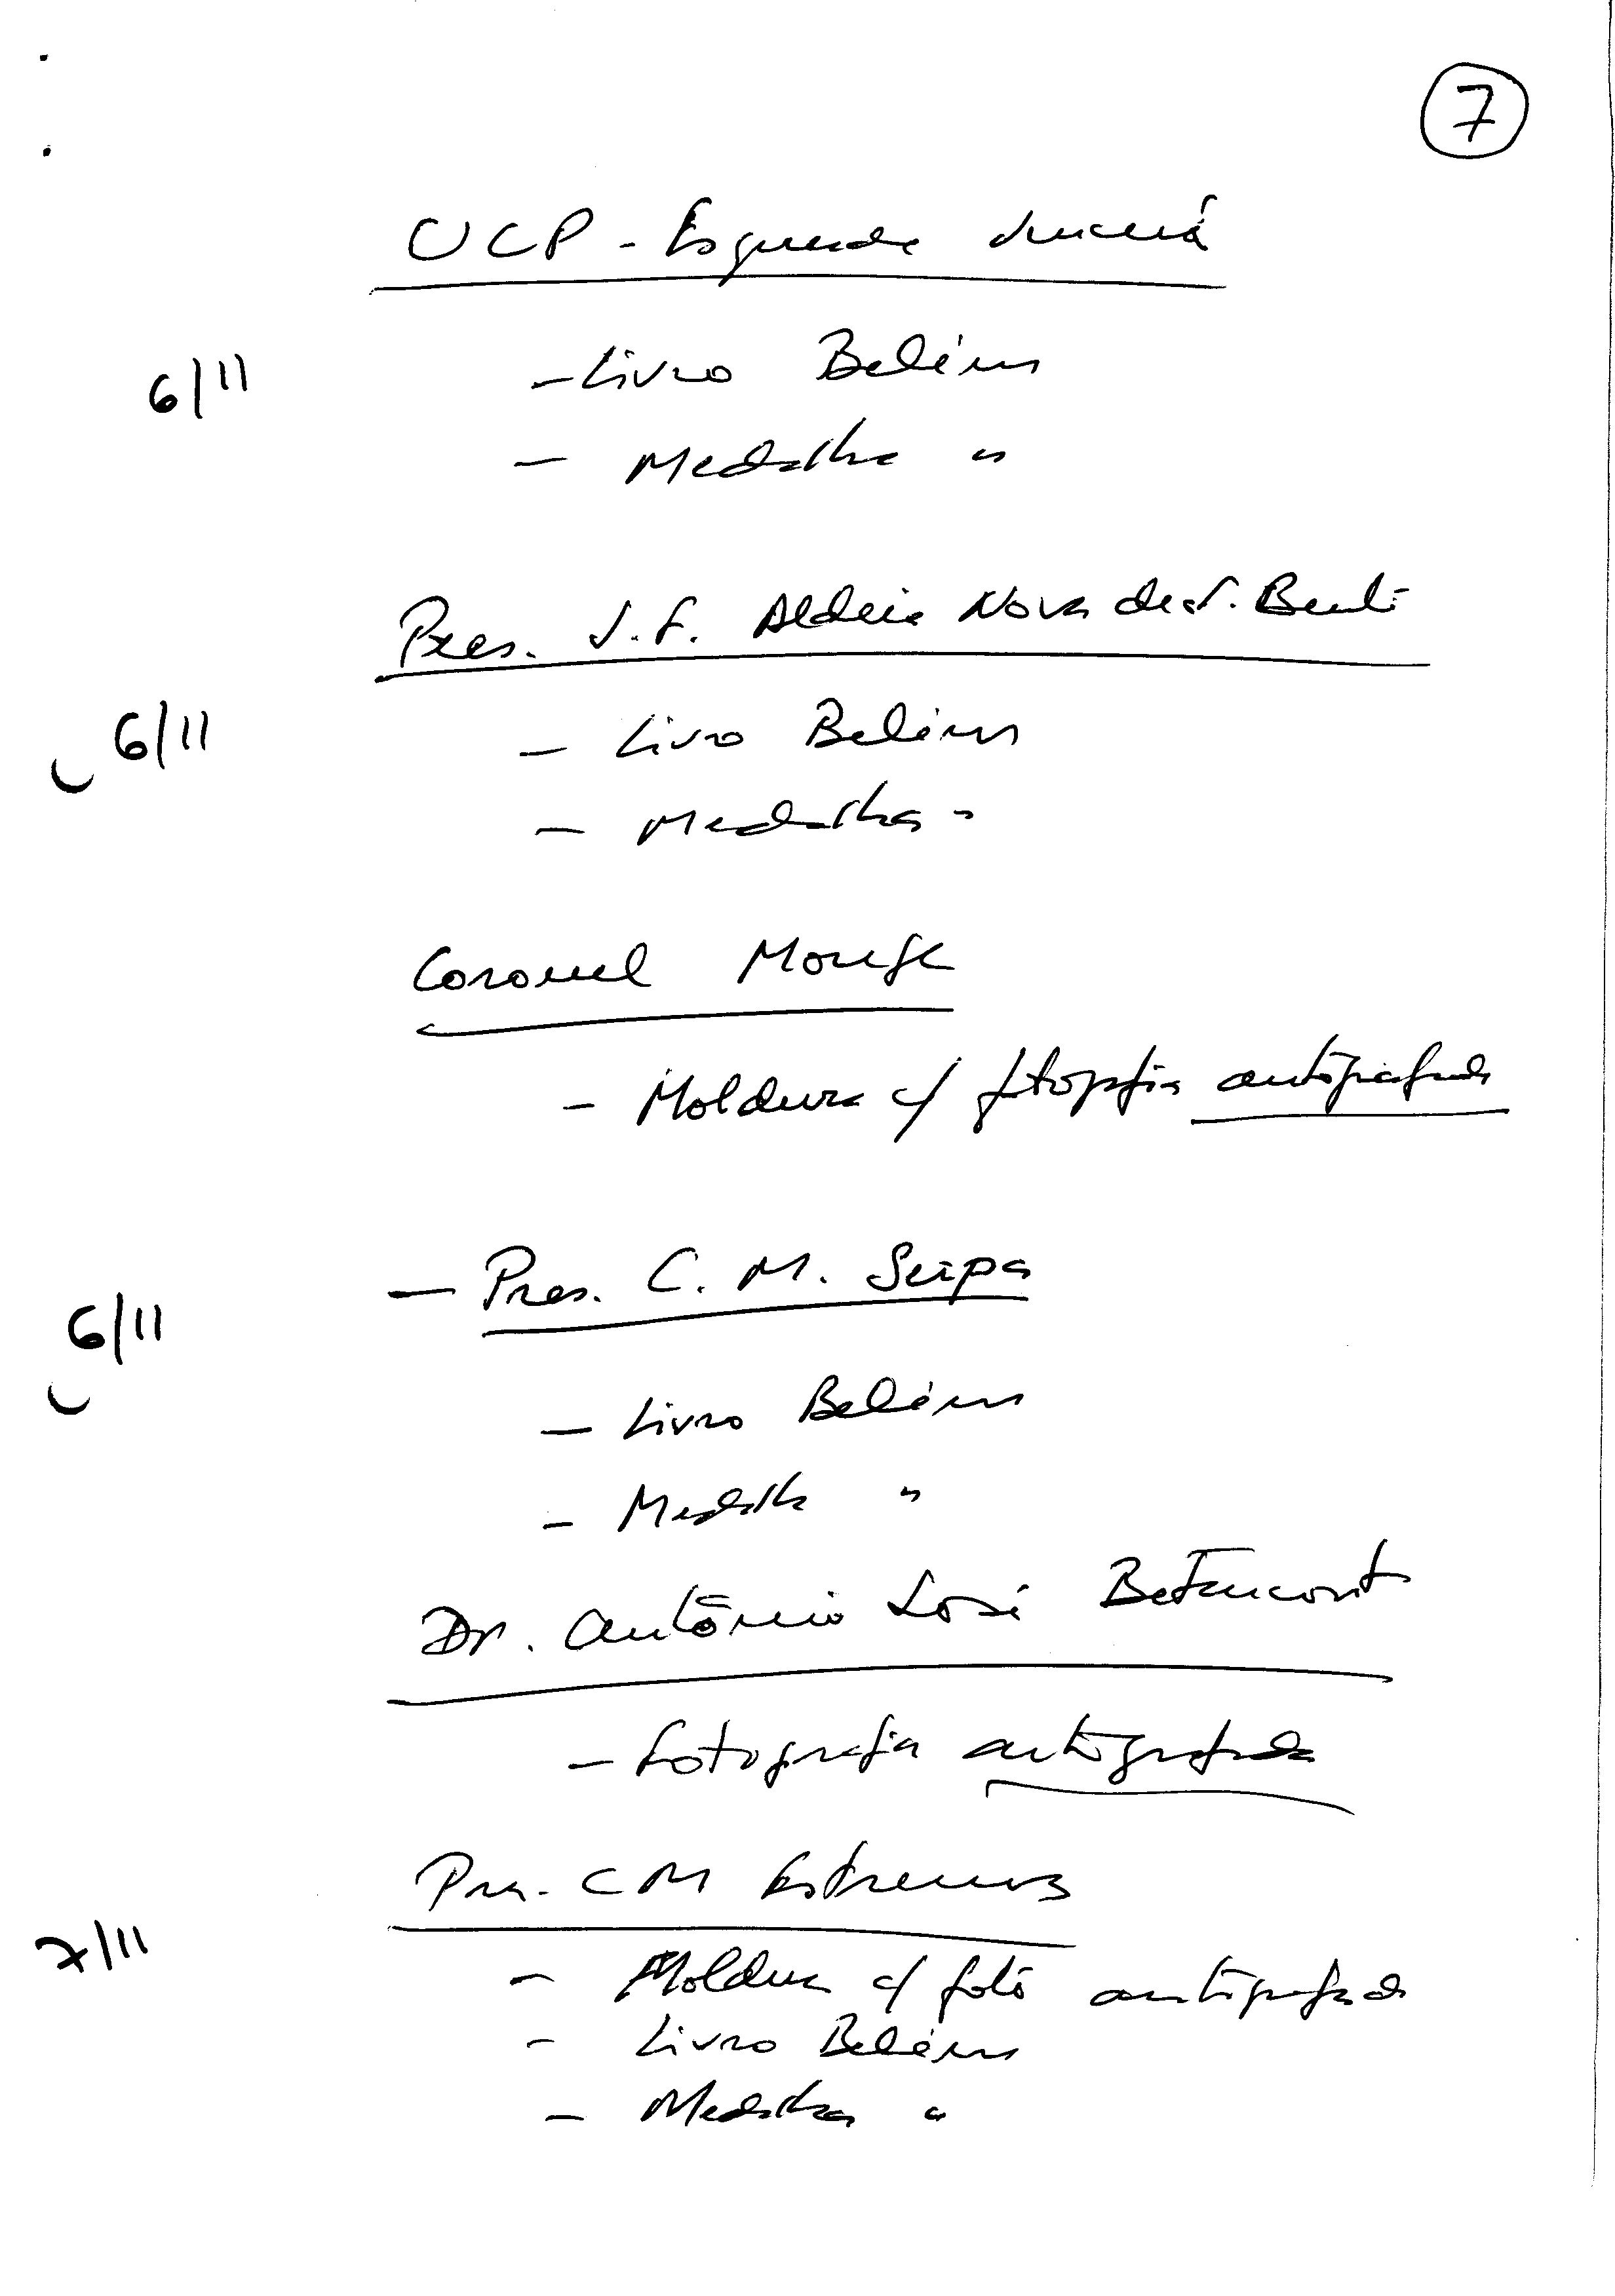 7
UCP - Esquerda
6/11
- Livro Belém
- Medalha "
Pres. J.F. Aldeia Nova de S. Bento
6/11
- Livro Belém
- Medalha "
Coronel Monge
- Moldura c/ fotografia autografada
- Pres. C. M. Serpa
6/11
- Livro Belém
- Medalha "
Dr. António José Betencourt
- Fotografia autografada
Pres. CM Estremoz
7/11
- Moldura c/ foto autografada
- Livro Belém
- Medalha "